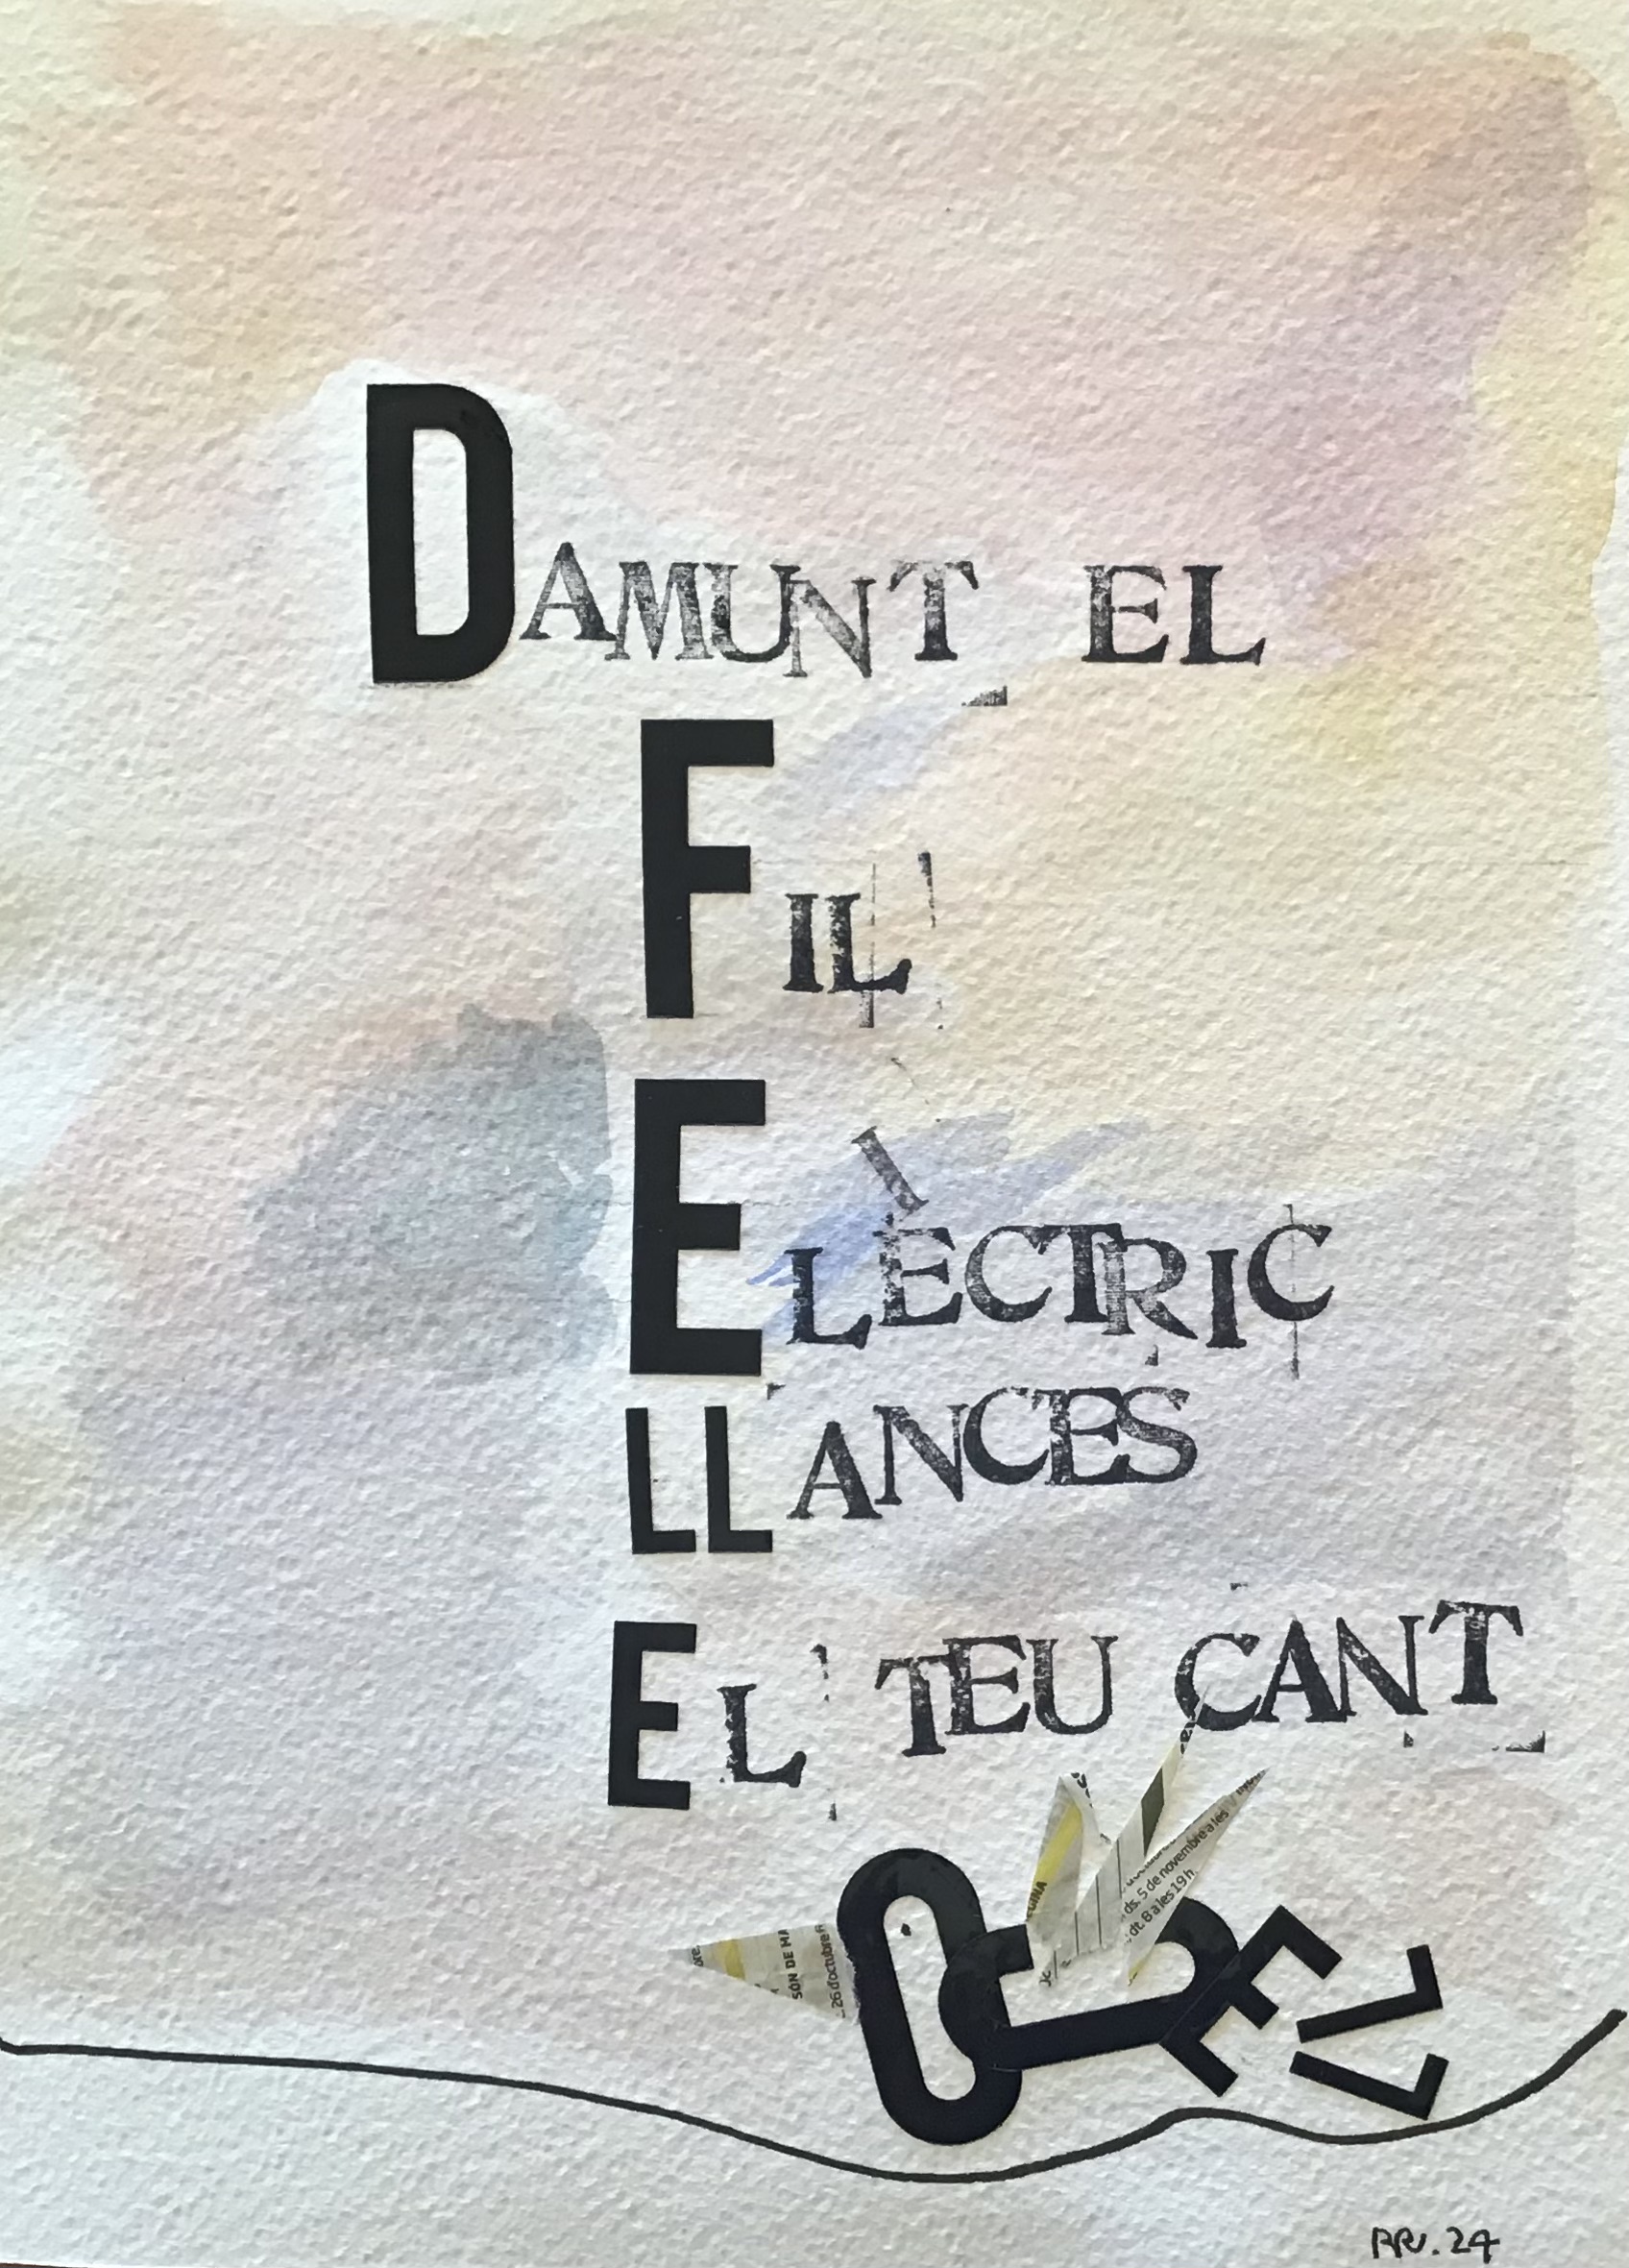 DAMUNT EL
FIL
ELÈCTRIC
LLANCES
EL TEU CANT
OCELL
SÓN DE MA
26 d'octubre
ds. 5 de novembre a les
dt. 8 a les 19 h.